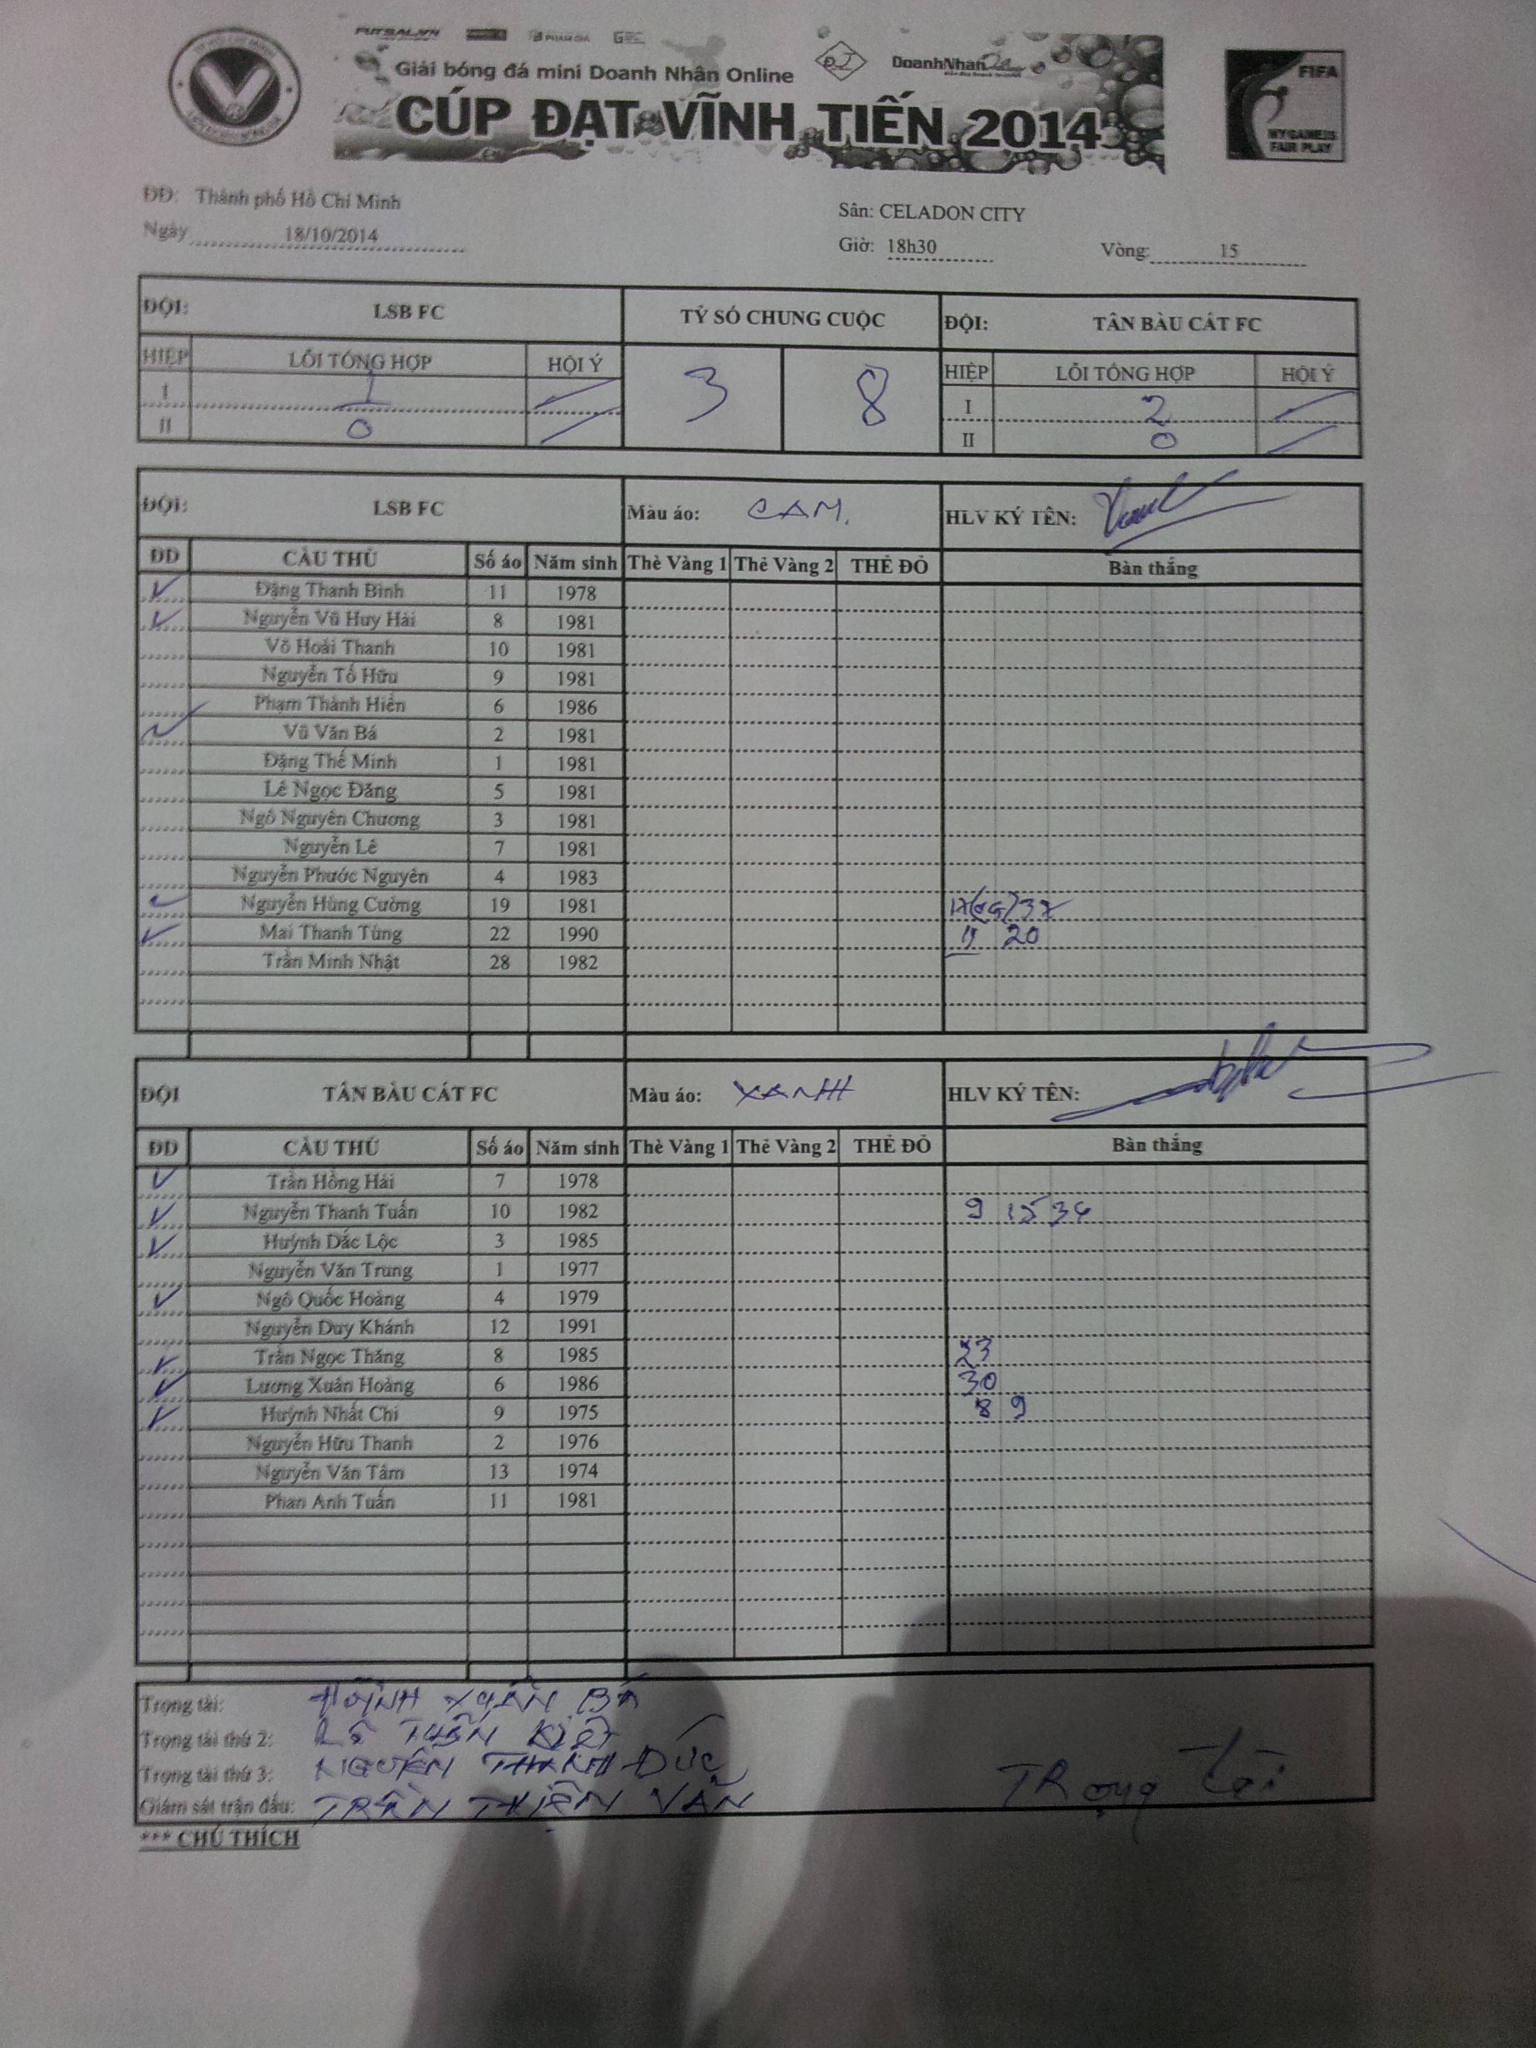 FUTSAL.VN PHAM GIA
Giải bóng đá mini Doanh Nhân Online
DoanhNhan
CÚP ĐẠT VĨNH TIẾN 2014
FIFA
MY GAME IS
FAIR PLAY
ĐĐ: Thành phố Hồ Chí Minh
Sân: CELADON CITY
Ngày 18/10/2014
Giờ: 18h30 Vòng: 15
ĐỘI: LSB FC TỶ SỐ CHUNG CUỘC ĐỘI: TÂN BÀU CÁT FC
HIỆP LỖI TỔNG HỢP HỘI Ý 3 8 HIỆP LỖI TỔNG HỢP HỘI Ý
I 1 I 2
II 0 II 0
ĐỘI: LSB FC Màu áo: CAM. HLV KÝ TÊN:
ĐD CẦU THỦ Số áo Năm sinh Thẻ Vàng 1 Thẻ Vàng 2 THẺ ĐỎ Bàn thắng
Đặng Thanh Bình 11 1978
Nguyễn Vũ Huy Hải 8 1981
Võ Hoài Thanh 10 1981
Nguyễn Tố Hữu 9 1981
Phạm Thành Hiển 6 1986
Vũ Văn Bá 2 1981
Đặng Thế Minh 1 1981
Lê Ngọc Đăng 5 1981
Ngô Nguyên Chương 3 1981
Nguyễn Lê 7 1981
Nguyễn Phước Nguyên 4 1983
Nguyễn Hùng Cường 19 1981
Mai Thanh Tùng 22 1990 20
Trần Minh Nhật 28 1982
ĐỘI TÂN BÀU CÁT FC Màu áo: XANH HLV KÝ TÊN:
ĐD CẦU THỦ Số áo Năm sinh Thẻ Vàng 1 Thẻ Vàng 2 THẺ ĐỎ Bàn thắng
Trần Hồng Hải 7 1978
Nguyễn Thanh Tuấn 10 1982 9 15 34
Huỳnh Dắc Lộc 3 1985
Nguyễn Văn Trung 1 1977
Ngô Quốc Hoàng 4 1979
Nguyễn Duy Khánh 12 1991
Trần Ngọc Thăng 8 1985 23
Lương Xuân Hoàng 6 1986 30
Huỳnh Nhất Chi 9 1975 8 9
Nguyễn Hữu Thanh 2 1976
Nguyễn Văn Tâm 13 1974
Phan Anh Tuấn 11 1981
Trọng tài: HUỲNH XUÂN BÁ
Trọng tài thứ 2: LÊ TUẤN KIỆT
Trọng tài thứ 3: NGUYỄN THANH ĐỨC
Giám sát trận đấu: TRẦN THIỆN VĂN
TRọng tài
*** CHÚ THÍCH